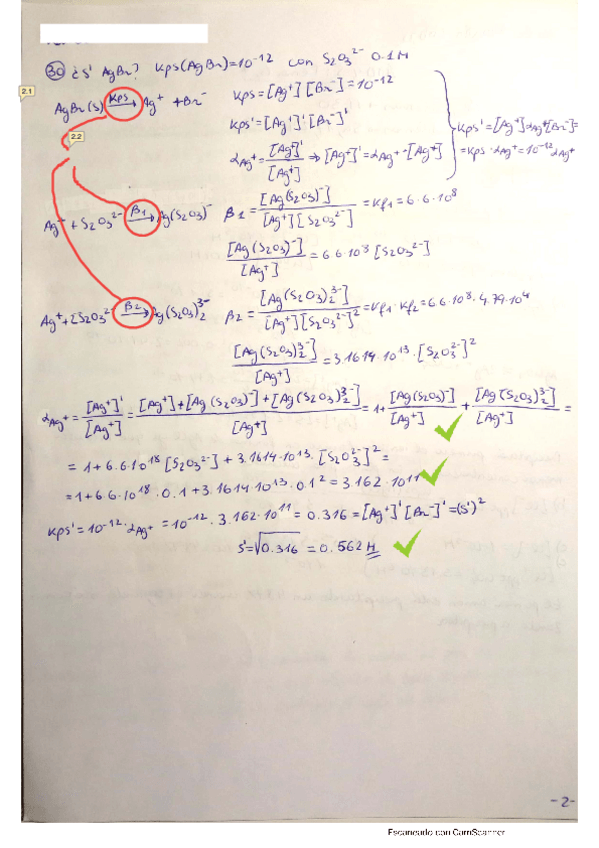 30 ¿S' AgBr? Kps(AgBr)=10⁻¹² con S₂O₃²⁻ 0.1M
2.1
AgBr(s) →Kps Ag⁺ + Br⁻
Kps=[Ag⁺][Br⁻]=10⁻¹²
Kps'=[Ag⁺]'·[Br⁻]'
Kps'=[Ag⁺]αAg⁺[Br⁻]=
=Kps·αAg⁺=10⁻¹²αAg⁺
2.2
αAg⁺=[Ag⁺]'/[Ag⁺] ⇒ [Ag⁺]'=αAg⁺·[Ag⁺]
Ag⁺ + S₂O₃²⁻ →β1 Ag(S₂O₃)⁻
β1=[Ag(S₂O₃)⁻]/[Ag⁺][S₂O₃²⁻]=Kf1=6.6·10⁸
[Ag(S₂O₃)⁻]/[Ag⁺]=6.6·10⁸[S₂O₃²⁻]
Ag⁺+[S₂O₃²⁻ →β2 Ag(S₂O₃)₂³⁻
β2=[Ag(S₂O₃)₂³⁻]/[Ag⁺][S₂O₃²⁻]²=Kf1·Kf2=6.6·10⁸·4.79·10⁴
[Ag(S₂O₃)₂³⁻]/[Ag⁺]=3.1614·10¹³·[S₂O₃²⁻]²
αAg⁺=[Ag⁺]'/[Ag⁺]=[Ag⁺]+[Ag(S₂O₃)⁻]+[Ag(S₂O₃)₂³⁻]/[Ag⁺]=1+[Ag(S₂O₃)⁻]/[Ag⁺]+[Ag(S₂O₃)₂³⁻]/[Ag⁺]=
=1+6.6·10¹⁸[S₂O₃²⁻]+3.1614·10¹³·[S₂O₃²⁻]²=
=1+6.6·10¹⁸·0.1+3.1614·10¹³·0.1²=3.162·10¹¹
Kps'=10⁻¹²·αAg⁺=10⁻¹²·3.162·10¹¹=0.316=[Ag⁺]'[Br⁻]'=(S')²
S'=√0.316=0.562M
-2-
Escaneado con CamScanner